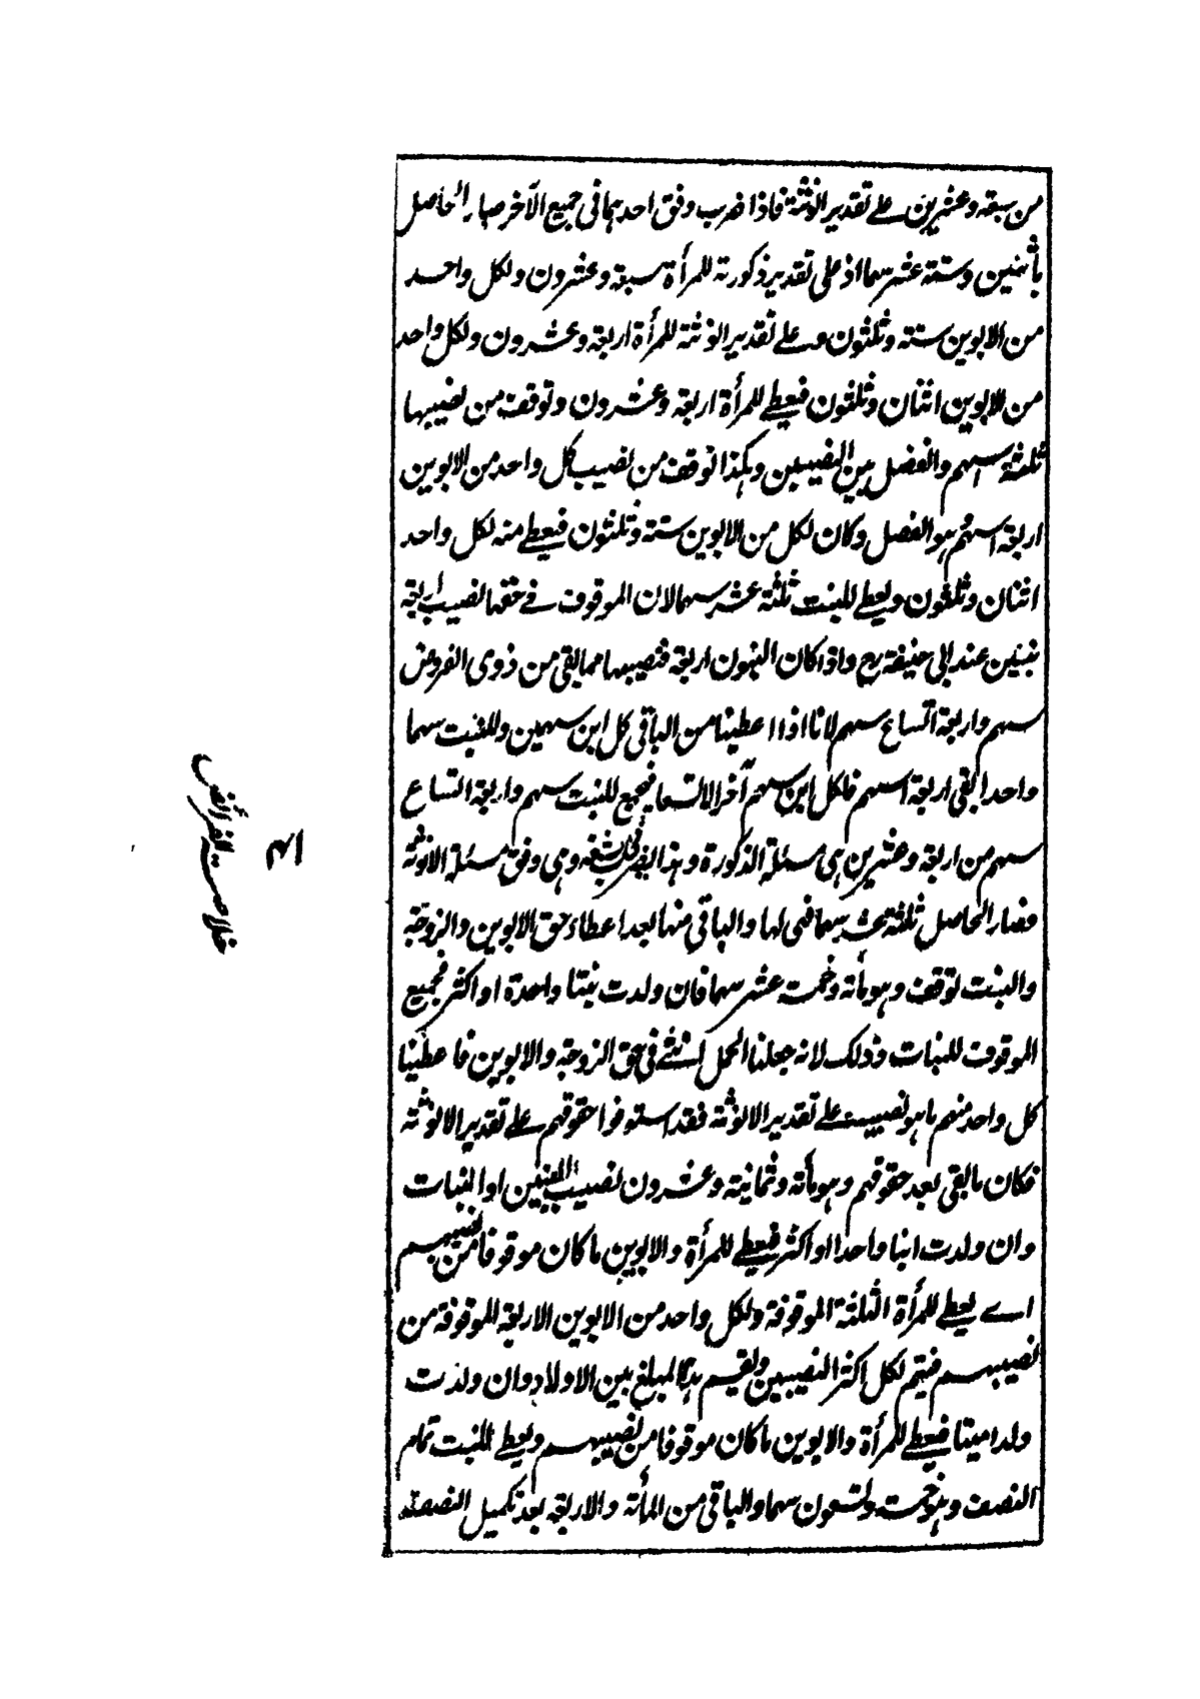 من سبعة وعشرين على تقدير الانوثة فاذا ضرب وفق احدهما فى جميع الآخر صار الحاصل
بأثنين وستة عشر سهما اذ على تقدير ذكورته للمرأة سبعة وعشرون ولكل واحد
من الابوين ستة وثلثون وعلى تقدير الانوثة للمرأة اربعة وعشرون ولكل واحد
من الابوين اثنان وثلثون فيعطى للمرأة اربعة وعشرون وتوقف من نصيبها
ثلثة اسهم والفضل بين النصيبين وهكذا توقف من نصيب كل واحد من الابوين
اربعة اسهم هو الفضل وكان لكل من الابوين ستة وثلثون فيعطى منه لكل واحد
اثنان وثلثون ويعطى للبنت ثلثة عشر سهما لان الموقوف فى حقها نصيب اربعة
بنين عند ابى حنيفة رح واذا كان البنون اربعة فنصيبها مما بقى من ذوى الفروض
سهم واربعة اتساع سهم لانا اذا اعطينا من الباقى كل ابن سهمين وللبنت سهما
واحدا بقى اربعة اسهم فلكل ابن سهم آخر الا تسعا فجمع للبنت سهم واربعة اتساع
سهم من اربعة وعشرين هى مسئلة الذكورة وهذا يضرب فى تسعة وهى وفق مسئلة الانوثة
فصار الحاصل ثلثة عشر سهما فهى لها والباقى منها بعد اعطاء حق الابوين والزوجة
والبنت توقف وهو مأة وخمسة عشر سهما فان ولدت بنتا واحدة او اكثر فجميع
الموقوف للبنات وذلك لانه جعلنا الحمل انثى فى حق الزوجة والابوين فاعطينا
كل واحد منهم ما هو نصيبه على تقدير الانوثة فقد استوفوا حقوقهم على تقدير الانوثة
فكان ما بقى بعد حقوقهم وهو مأة وثمانية وعشرون نصيب البنتين او البنات
وان ولدت ابنا واحدا او اكثر فيعطى للمرأة والابوين ما كان موقوفا من نصيبهم
اے يعطى للمرأة الثلثة الموقوفة ولكل واحد من الابوين الاربعة الموقوفة من
نصيبهم فيتم لكل اكثر النصيبين ويقسم بذا المبلغ بين الاولاد وان ولدت
ولدا ميتا فيعطى للمرأة والابوين ما كان موقوفا من نصيبهم ويعطى للبنت تمام
النصف وهو خمسة وتسعون سهما والباقى من المأة والاربعة بعد تكميل النصف
خلاصة الفرائض